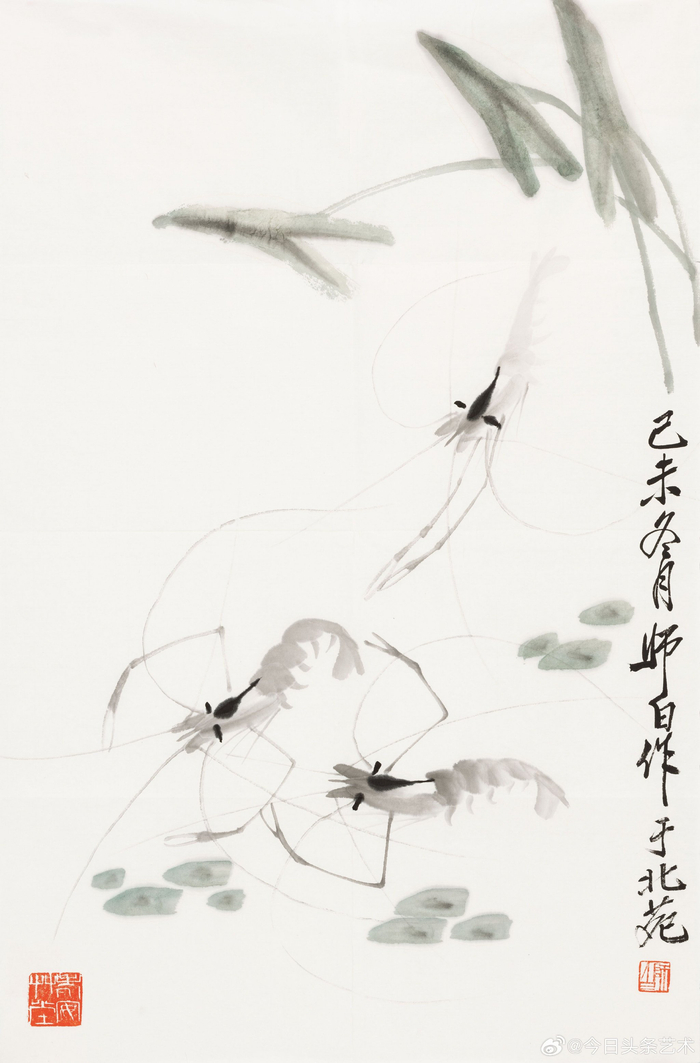 己未冬月师白作于北苑
@今日头条艺术